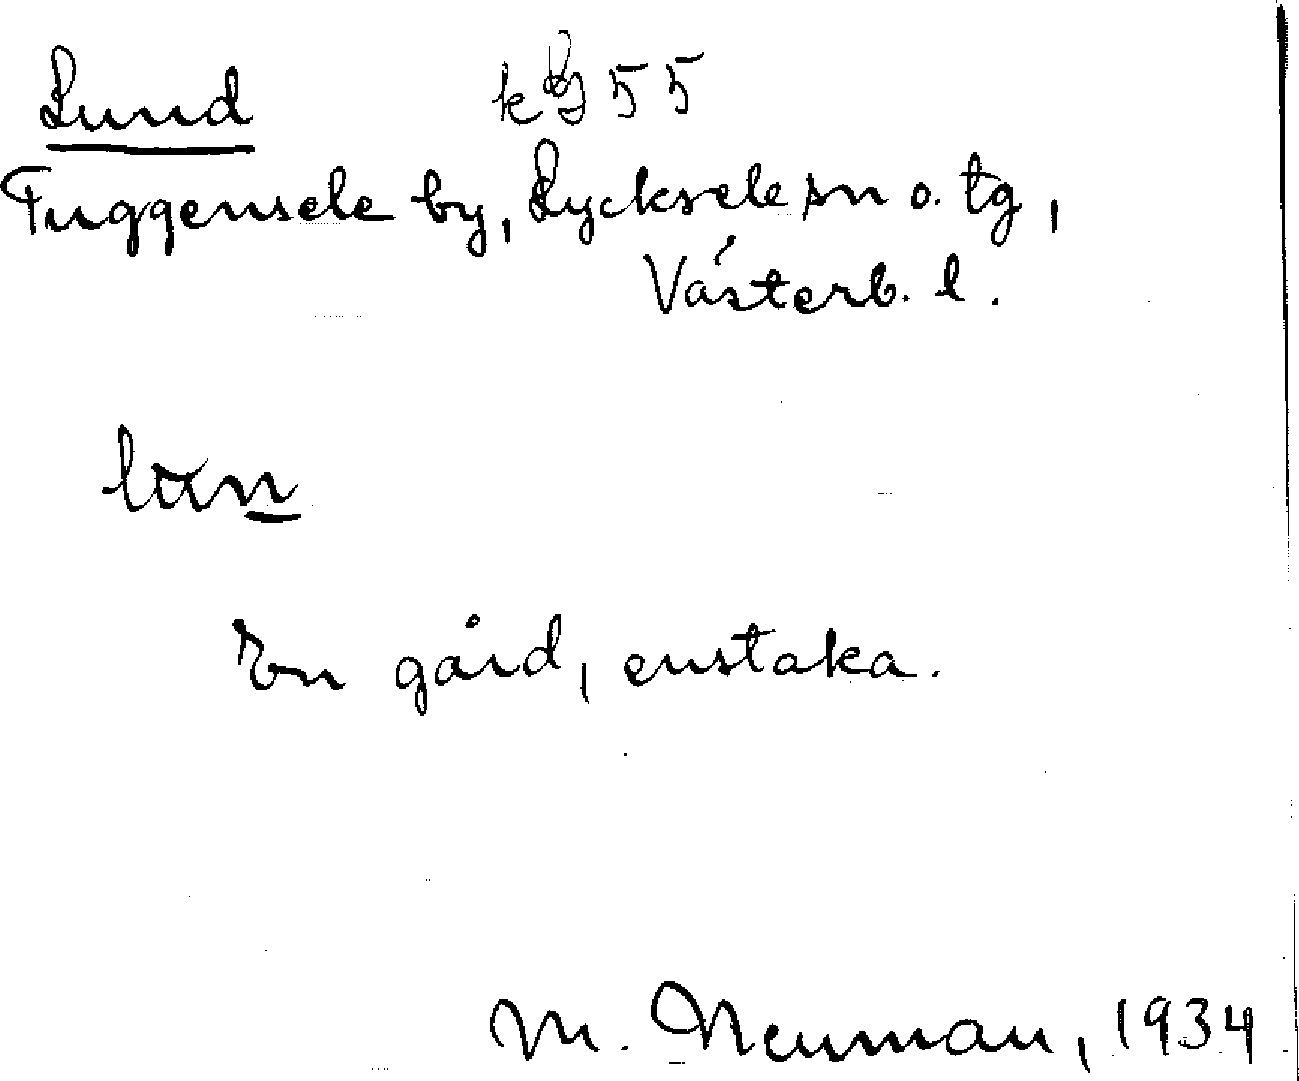 Lund kg 55
Tuggensele by, Lycksele sn o. tg,
Västerb. l.
En gård, enstaka.
M. Neuman, 1934